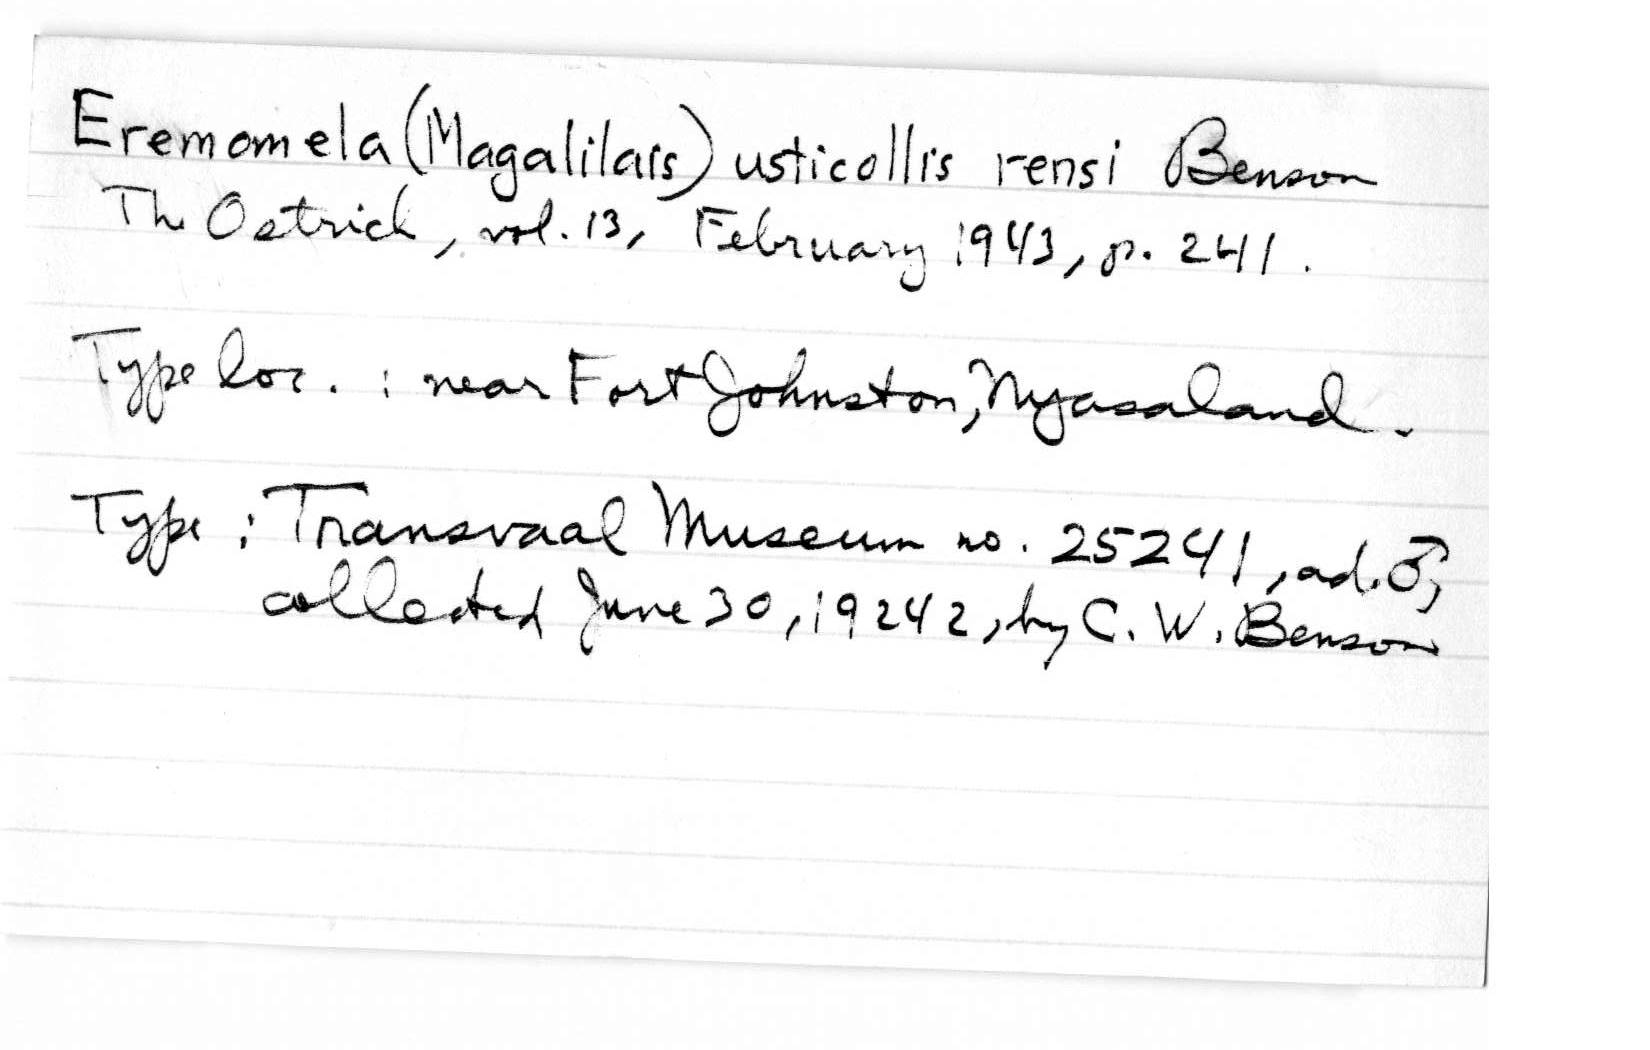 Eremomela (Magalilais) usticollis rensi Benson
The Ostrich, vol. 13, February 1943, p. 241.
Type loc. : near Fort Johnston, Nyasaland.
Type : Transvaal Museum no. 25241, ad. ♂,
collected June 30, 19242, by C. W. Benson